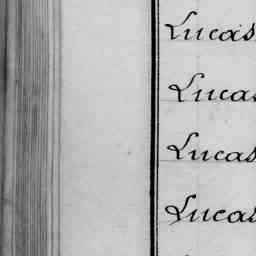 Lucas
Lucas
Lucas
Lucas